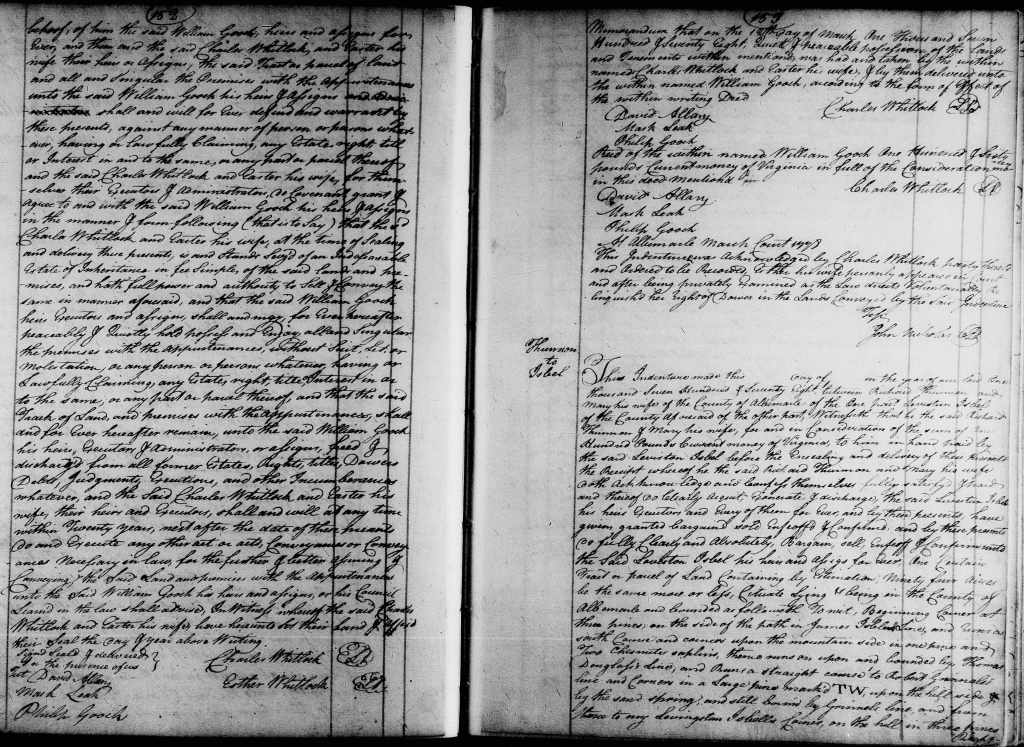 152
behoof, of him the said William Gooch, heirs and assigns for
Ever, and them and the said Charles Whitlock, and Easter his
wife their heirs or Assigns, The said Tract or parcel of Land
and all and Singular the Premises with the Appurtenances
unto the said William Gooch his heirs & Assigns
shall and will for Ever defend and warrant by
these presents, against any manner of person or persons whatso-
ever, having or Lawfully Claiming, any Estate right title
or Interest in and to the same, or any part or parcel thereof
and the said Charles Whitlock and Easter his wife, for them-
selves their Executors & Administrators, do Covenant grant &
agree to and with the said William Gooch his heirs & Assigns
in the manner & form following (that is to Say) that the sd
Charles Whitlock and Easter his wife, at the time of Sealing
and delivery these presents, is and Stands Seiz'd of an Indefeasable
Estate of Inheritance in fee Simple, of the said Land and pre-
mises, and hath full power and authority to Sell & Convey the
same in manner aforesaid, and that the said William Gooch
heirs Executors and assigns, shall and may, for Ever hereafter
peaceably & Quietly hold possess and Enjoy, all and Singular
the premises with the Appurtenances, without Suit, Let, or
Molestation, or any person or persons whatever having or
Lawfully Claiming, any Estate, right, title Interest in or
to the same, or any part or parcel thereof, and that the said
Track of Land, and premises with the Appurtenances, shall
and for Ever hereafter remain, unto the said William Gooch
his heirs, Executors & Administrators, or assigns, freed &
discharg'd from all former Estates, Rights, titles, Dowers
Debts, Judgments, Executions, and other Incumberances
whatever, and the Said Charles Whitlock and Easter his
wife, their heirs and Executors, shall and will at any time
within Twenty years, next after the date of these presents
do and Execute any other act or acts, Conveyance or Convey-
ances Necessary in Law, for the further & better assuring &
Conveying, the Said Land and premises with the Appurtenances
unto the Said William Gooch his heirs and assigns, or his Council
Learnd in the law shall advise, In Witness whereof the said Charles
Whitlock and Easter his wife, have hereunto set their hand & affixd
their Seal the day & year above Writing
Signd Seald & deliver'd
In the presence of us
Test David Allan
Charles Whitlock
Mark Leak
Esther Whitlock
Philip Gooch
153
Memorandum that on the day of March, One Thous and Seven
Hundred & Seventy Eight, Quiet & peaceable possession of the Lands
and Tenements within mentiond, was had and taken by the within
named Charles Whitlock and Easter his wife, & by them delivered unto
the within named William Gooch, according to the form & Effect of
the within writing Deed
Charles Whitlock
David Allan
Mark Leak
Philip Gooch
Recd of the within named William Gooch One Hundred & Sixty
pounds Current money of Virginia in full of the Consideration
in this deed Mentiond
Charles Whitlock
David Allan
Mark Leak
Philip Gooch
At Albemarle March Court 1778
This Indenture was Acknowledged by Charles Whitlock party thereto
and Ordered to be Recorded, Esther his wife personly appears in Court
and after being privately Examined as the Law directs Voluntarily re-
linquish'd her right of Dower in the Lands Conveyed by the said Indenture
Test
John Nicholas
Thurmon
to
Isbel
This Indenture made this day of in the year of our Lord One
thousand Seven Hundred & Seventy Eight between Richard Thurmon and
Mary his wife of the County of Albemarle of the One part and Isbel
of the County Aforesaid of the other part, Witnesseth that he the said Richard
Thurmon & Mary his wife, for and in Consideration of the sum of One
Hundred Pounds Current money of Virginia, to him in hand Paid by
the said Isbel before the Ensealing and delivery of these Presents
the Receipt whereof he the said Richard Thurmon and Mary his wife
doth Acknowledge and themselves fully satisfyd & paid
and thereof do Clearly Acquit Exonerate & discharge, the said Isbel
his heirs Executors and Every of them for Ever, and by these presents, have
given granted bargaind Sold Enfeoffd & Confirmd, and by these presents
do fully Clearly and Absolutely, Bargain, sell Enfeoff & Confirm unto
the Said Isbel his heirs and Assigs for Ever, One Certain
Tract or parcel of Land Containing by Estimation, Ninety four Acres
be the same more or less, Situate Lying & being in the County of
Albemarle and bounded as followeth To wit, Beginning Corner at
three pines, on the side of the path in James Isbels Line, and runs a
south Course and corners upon the mountain side in one pine and
Two Chesnut saplins, thence runs on upon and bounded by Thomas
Line, and Runs a straight course to Robert
line and Corners in a Large pine marked TW, upon the hill
by the said Spring, and still bound by line and from
thence to my Isbells Corner, on the hill in three pines